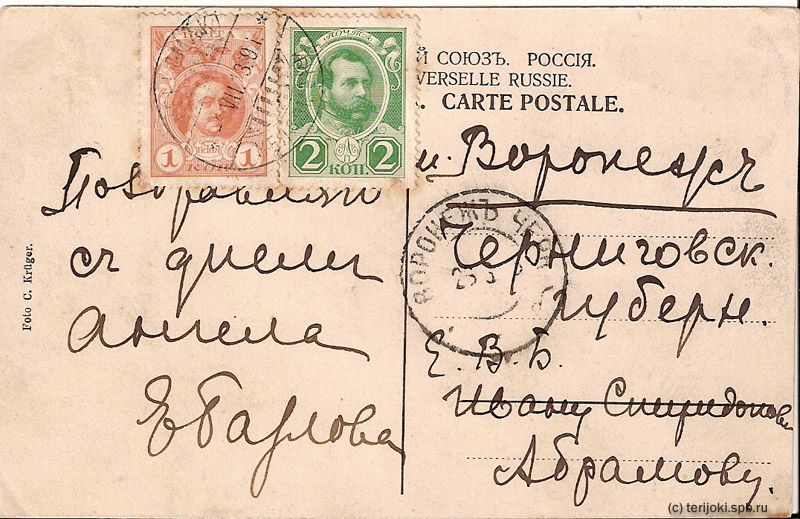 ПОЧТА
1 1
КОП.
2 2
КОП.
VII
Й СОЮЗЪ. РОССІЯ.
VERSELLE RUSSIE.
CARTE POSTALE.
Поздравляю
съ днемъ
ангела
Е Павлова
м. Воронежъ
Черниговск.
губерн.
Е. В. Б.
Ивану Спиридонови
Абрамову.
ВОРОНЕЖЪ ЧЕРН
Foto C. Krüger.
(c) terijoki.spb.ru